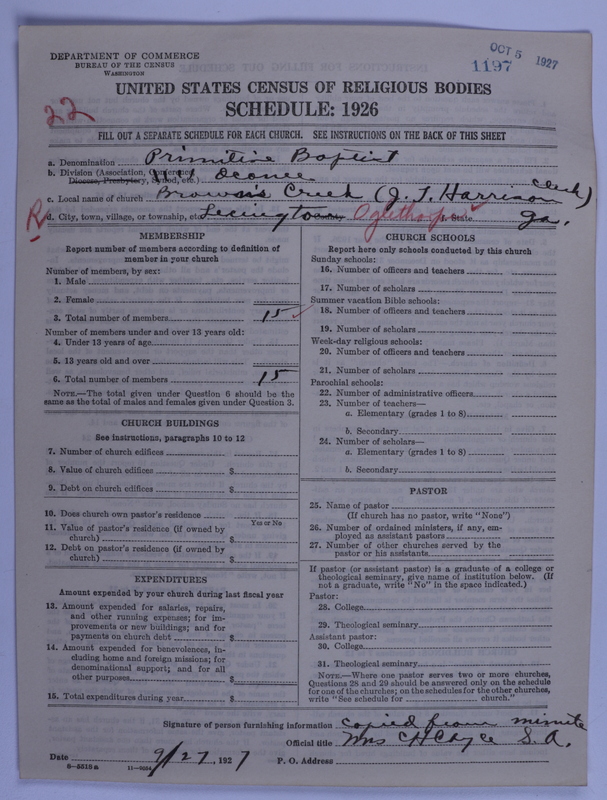 DEPARTMENT OF COMMERCE
BUREAU OF THE CENSUS
WASHINGTON
OCT 5 1927
1197
UNITED STATES CENSUS OF RELIGIOUS BODIES
SCHEDULE: 1926
22
FILL OUT A SEPARATE SCHEDULE FOR EACH CHURCH. SEE INSTRUCTIONS ON THE BACK OF THIS SHEET
a. Denomination Primitive Baptist
b. Division (Association, Conference, Diocese, Presbytery, Synod, etc.) Oconee
c. Local name of church Browns Creek (J. T. Harrison Clerk)
R
d. City, town, village, or township, etc. Lexington County Oglethorpe State Ga.
MEMBERSHIP
Report number of members according to definition of
member in your church
Number of members, by sex:
1. Male
2. Female
3. Total number of members 15
Number of members under and over 13 years old:
4. Under 13 years of age
5. 13 years old and over
6. Total number of members 15
NOTE.—The total given under Question 6 should be the
same as the total of males and females given under Question 3.
CHURCH BUILDINGS
See instructions, paragraphs 10 to 12
7. Number of church edifices
8. Value of church edifices $
9. Debt on church edifices $
10. Does church own pastor's residence
Yes or No
11. Value of pastor's residence (if owned by
church) $
12. Debt on pastor's residence (if owned by
church) $
EXPENDITURES
Amount expended by your church during last fiscal year
13. Amount expended for salaries, repairs,
and other running expenses; for im-
provements or new buildings; and for
payments on church debt $
14. Amount expended for benevolences, in-
cluding home and foreign missions; for
denominational support; and for all
other purposes $
15. Total expenditures during year $
CHURCH SCHOOLS
Report here only schools conducted by this church
Sunday schools:
16. Number of officers and teachers
17. Number of scholars
Summer vacation Bible schools:
18. Number of officers and teachers
19. Number of scholars
Week-day religious schools:
20. Number of officers and teachers
21. Number of scholars
Parochial schools:
22. Number of administrative officers
23. Number of teachers—
a. Elementary (grades 1 to 8)
b. Secondary
24. Number of scholars—
a. Elementary (grades 1 to 8)
b. Secondary
PASTOR
25. Name of pastor
(If church has no pastor, write "None")
26. Number of ordained ministers, if any, em-
ployed as assistant pastors
27. Number of other churches served by the
pastor or his assistants
If pastor (or assistant pastor) is a graduate of a college or
theological seminary, give name of institution below. (If
not a graduate, write "No" in the space indicated.)
Pastor:
28. College
29. Theological seminary
Assistant pastor:
30. College
31. Theological seminary
NOTE.—Where one pastor serves two or more churches,
Questions 28 and 29 should be answered only on the schedule
for one of the churches; on the schedules for the other churches,
write "See schedule for church."
Signature of person furnishing information copied from minute
Official title Mrs C H Cayce S. A.
Date 9/27, 1927 P. O. Address